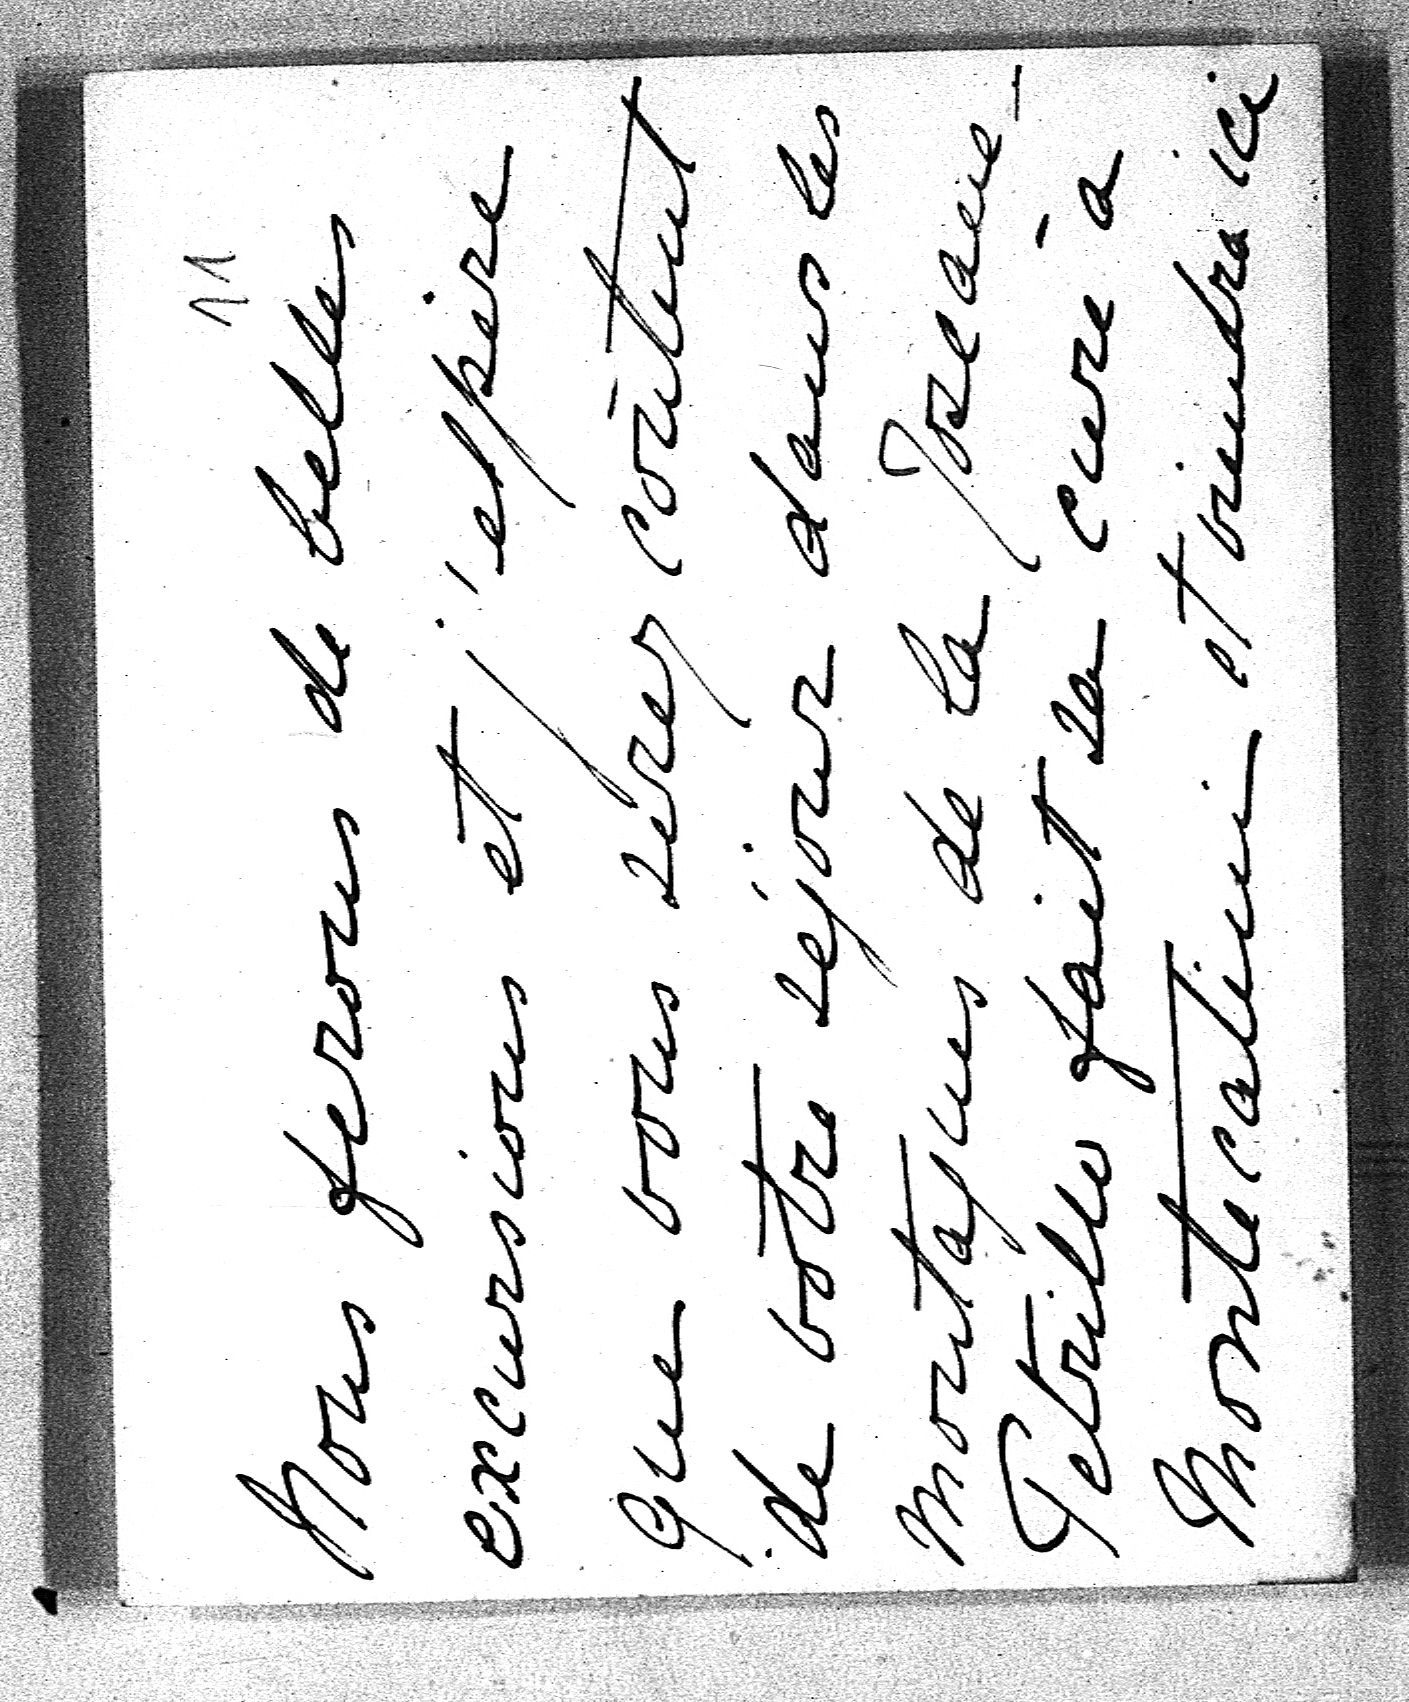 11
Nous ferons de belles
excursions et j'espère
que vous serez content
de votre séjour dans les
montagnes de la Toscane –
Petrillo fait sa cure à
Montecatini et viendra ici